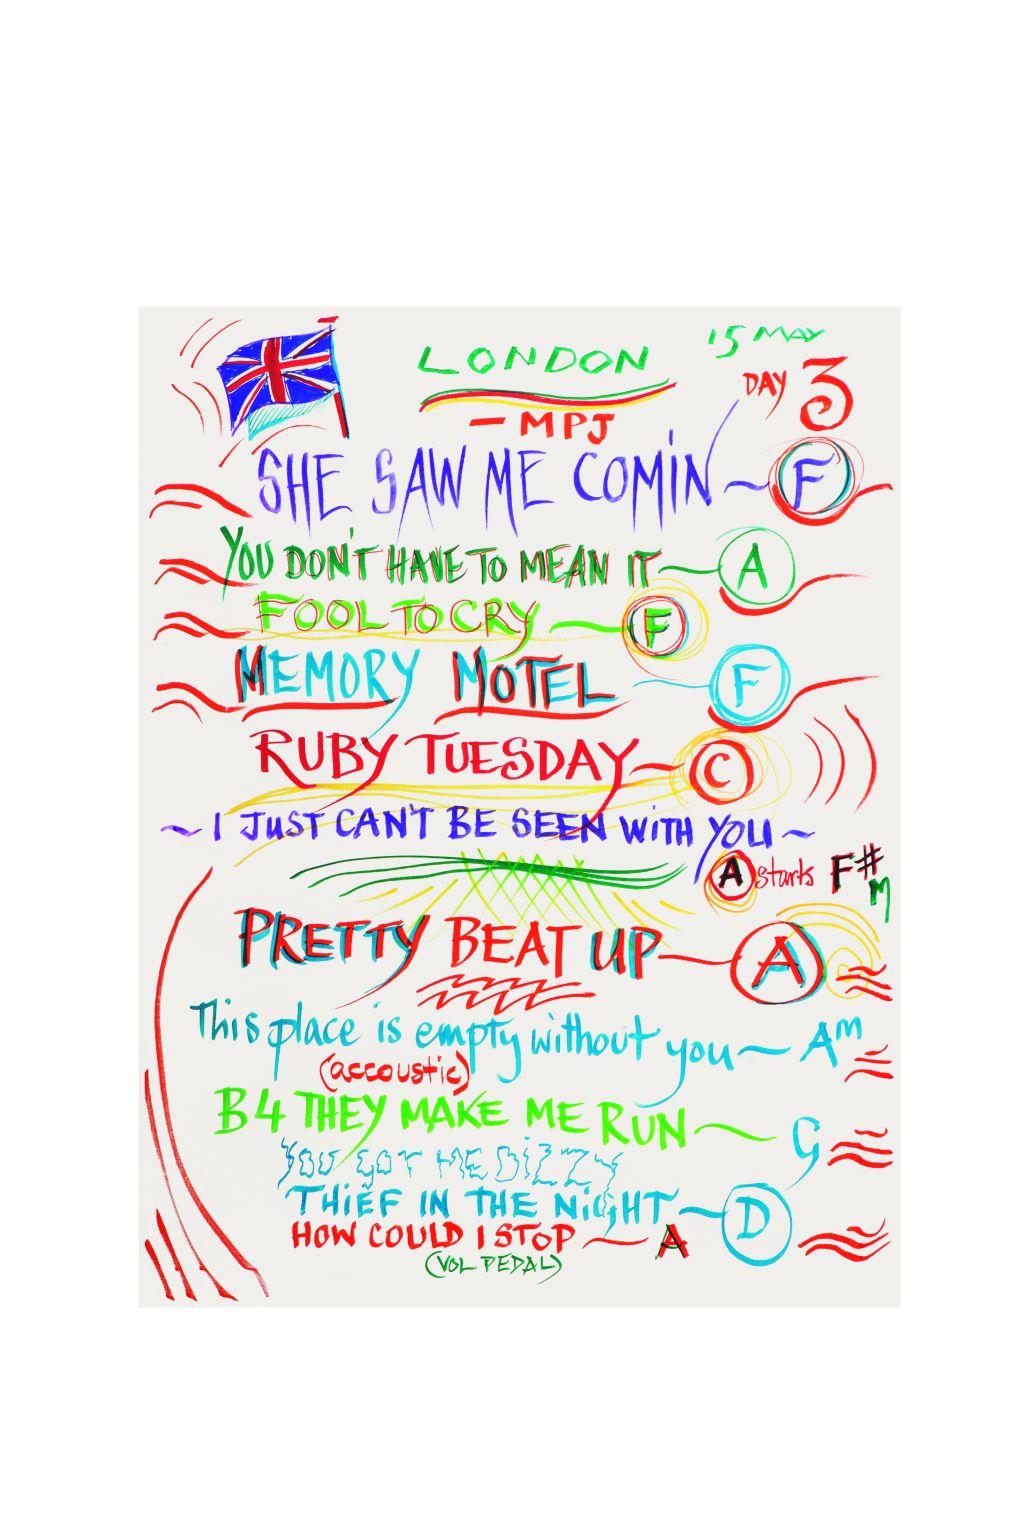 15 MAY
LONDON
DAY 3
- MPJ
SHE SAW ME COMIN ~ F
YOU DON'T HAVE TO MEAN IT ~ A
FOOL TO CRY ~ F
MEMORY MOTEL ~ F
RUBY TUESDAY ~ C
~ I JUST CAN'T BE SEEN WITH YOU ~
A starts F#M
PRETTY BEAT UP ~ A
This place is empty without you ~ Am
(accoustic)
B4 THEY MAKE ME RUN ~ G
YOU GOT ME DIZZY
THIEF IN THE NIGHT ~ D
HOW COULD I STOP ~ A
(VOL PEDAL)